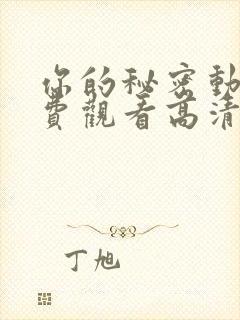 你的秘密動
費觀看高清
丁旭